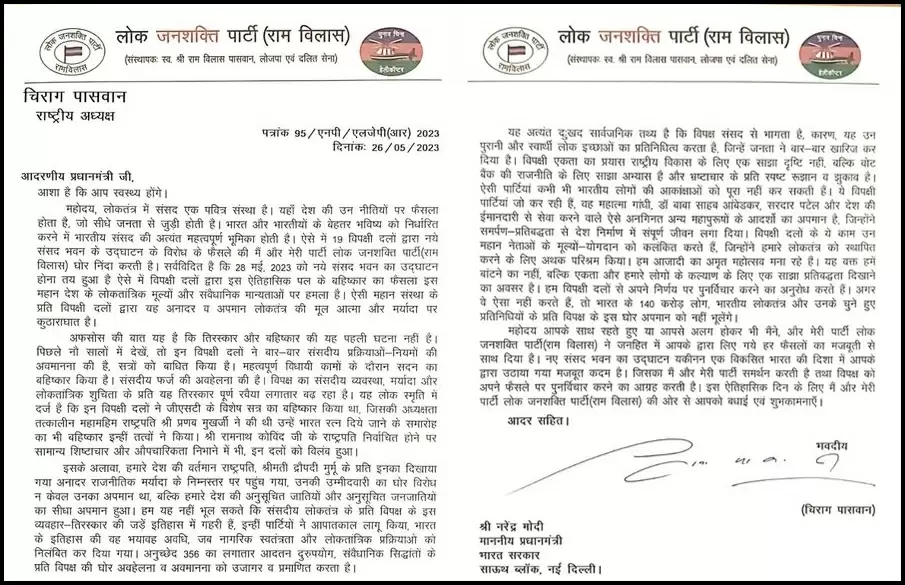 लोक जनशक्ति पार्टी (राम विलास)
(संस्थापकः स्व. श्री राम विलास पासवान, लोजपा एवं दलित सेना)
लोक जनशक्ति पार्टी
रामविलास
चुनाव चिन्ह
हेलीकॉप्टर
चिराग पासवान
राष्ट्रीय अध्यक्ष
पत्रांक 95/एनपी/एलजेपी(आर) 2023
दिनांकः 26/05/2023
आदरणीय प्रधानमंत्री जी,
आशा है कि आप स्वस्थ्य होंगे।
महोदय, लोकतंत्र में संसद एक पवित्र संस्था है। यहाँ देश की उन नीतियों पर फैसला
होता है, जो सीधे जनता से जुड़ी होती है। भारत और भारतीयों के बेहतर भविष्य को निर्धारित
करने में भारतीय संसद की अत्यंत महत्वपूर्ण भूमिका होती है। ऐसे में 19 विपक्षी दलों द्वारा नये
संसद भवन के उद्घाटन के विरोध के फैसले की मैं और मेरी पार्टी लोक जनशक्ति पार्टी(राम
विलास) घोर निंदा करती है। सर्वविदित है कि 28 मई, 2023 को नये संसद भवन का उद्घाटन
होना तय हुआ है ऐसे में विपक्षी दलों द्वारा इस ऐतिहासिक पल के बहिष्कार का फैसला इस
महान देश के लोकतांत्रिक मूल्यों और संवैधानिक मान्यताओं पर हमला है। ऐसी महान संस्था के
प्रति विपक्षी दलों द्वारा यह अनादर व अपमान लोकतंत्र की मूल आत्मा और मर्यादा पर
कुठाराघात है।
अफसोस की बात यह है कि तिरस्कार और बहिष्कार की यह पहली घटना नहीं है।
पिछले नौ सालों में देखें, तो इन विपक्षी दलों ने बार-बार संसदीय प्रक्रियाओं-नियमों की
अवमानना की है, सत्रों को बाधित किया है। महत्वपूर्ण विधायी कामों के दौरान सदन का
बहिष्कार किया है। संसदीय फर्ज की अवहेलना की है। विपक्ष का संसदीय व्यवस्था, मर्यादा और
लोकतांत्रिक शुचिता के प्रति यह तिरस्कार पूर्ण रवैया लगातार बढ रहा है। यह लोक स्मृति में
दर्ज है कि इन विपक्षी दलों ने जीएसटी के विशेष सत्र का बहिष्कार किया था, जिसकी अध्यक्षता
तत्कालीन महामहिम राष्ट्रपति श्री प्रणब मुखर्जी ने की थी उन्हें भारत रत्न दिये जाने के समारोह
का भी बहिष्कार इन्हीं तत्वों ने किया। श्री रामनाथ कोविंद जी के राष्ट्रपति निर्वाचित होने पर
सामान्य शिष्टाचार और औपचारिकता निभाने में भी, इन दलों को विलंब हुआ।
इसके अलावा, हमारे देश की वर्तमान राष्ट्रपति, श्रीमती द्रौपदी मुर्मू के प्रति इनका दिखाया
गया अनादर राजनीतिक मर्यादा के निम्नस्तर पर पहुंच गया, उनकी उम्मीदवारी का घोर विरोध
न केवल उनका अपमान था, बल्कि हमारे देश की अनुसूचित जातियों और अनुसूचित जनजातियों
का सीधा अपमान हुआ। हम यह नहीं भूल सकते कि संसदीय लोकतंत्र के प्रति विपक्ष के इस
व्यवहार-तिरस्कार की जड़ें इतिहास में गहरी हैं, इन्हीं पार्टियों ने आपातकाल लागू किया, भारत
के इतिहास की वह भयावह अवधि, जब नागरिक स्वतंत्रता और लोकतांत्रिक प्रक्रियाओं को
निलंबित कर दिया गया। अनुच्छेद 356 का लगातार आदतन दुरुपयोग, संवैधानिक सिद्धांतों के
प्रति विपक्ष की घोर अवहेलना व अवमानना को उजागर व प्रमाणित करता है।
लोक जनशक्ति पार्टी (राम विलास)
(संस्थापकः स्व. श्री राम विलास पासवान, लोजपा एवं दलित सेना)
लोक जनशक्ति पार्टी
रामविलास
चुनाव चिन्ह
हेलीकॉप्टर
यह अत्यंत दुःखद सार्वजनिक तथ्य है कि विपक्ष संसद से भागता है, कारण, यह उन
पुरानी और स्वार्थी लोक इच्छाओं का प्रतिनिधित्व करता है, जिन्हें जनता ने बार-बार खारिज कर
दिया है। विपक्षी एकता का प्रयास राष्ट्रीय विकास के लिए एक साझा दृष्टि नहीं, बल्कि वोट
बैंक की राजनीति के लिए साझा अभ्यास है और भ्रष्टाचार के प्रति स्पष्ट रूझान व झुकाव है।
ऐसी पार्टियां कभी भी भारतीय लोगों की आकांक्षाओं को पूरा नहीं कर सकती हैं। ये विपक्षी
पार्टियां जो कर रही हैं, वह महात्मा गांधी, डॉ बाबा साहब आंबेडकर, सरदार पटेल और देश की
ईमानदारी से सेवा करने वाले ऐसे अनगिनत अन्य महापुरूषों के आदर्शों का अपमान है, जिन्होंने
समर्पण-प्रतिबद्धता से देश निर्माण में संपूर्ण जीवन लगा दिया। विपक्षी दलों के ये काम उन
महान नेताओं के मूल्यों-योगदान को कलंकित करते हैं, जिन्होंने हमारे लोकतंत्र को स्थापित
करने के लिए अथक परिश्रम किया। हम आजादी का अमृत महोत्सव मना रहे हैं। यह वक्त हमें
बांटने का नहीं, बल्कि एकता और हमारे लोगों के कल्याण के लिए एक साझा प्रतिबद्धता दिखाने
का अवसर है। हम विपक्षी दलों से अपने निर्णय पर पुनर्विचार करने का अनुरोध करते हैं। अगर
वे ऐसा नहीं करते हैं, तो भारत के 140 करोड़ लोग, भारतीय लोकतंत्र और उनके चुने हुए
प्रतिनिधियों के प्रति विपक्ष के इस घोर अपमान को नहीं भूलेंगे।
महोदय आपके साथ रहते हुए या आपसे अलग होकर भी मैंने, और मेरी पार्टी लोक
जनशक्ति पार्टी(राम विलास) ने जनहित में आपके द्वारा लिए गये हर फैसलों का मजबूती से
साथ दिया है। नए संसद भवन का उद्घाटन यकीनन एक विकसित भारत की दिशा में आपके
द्वारा उठाया गया मजबूत कदम है। जिसका मैं और मेरी पार्टी समर्थन करती है तथा विपक्ष को
अपने फैसले पर पुनर्विचार करने का आग्रह करती है। इस ऐतिहासिक दिन के लिए मैं और मेरी
पार्टी लोक जनशक्ति पार्टी(राम विलास) की ओर से आपको बधाई एवं शुभकामनाएँ।
आदर सहित।
भवदीय
(चिराग पासवान)
श्री नरेंद्र मोदी
माननीय प्रधानमंत्री
भारत सरकार
साऊथ ब्लॉक, नई दिल्ली।